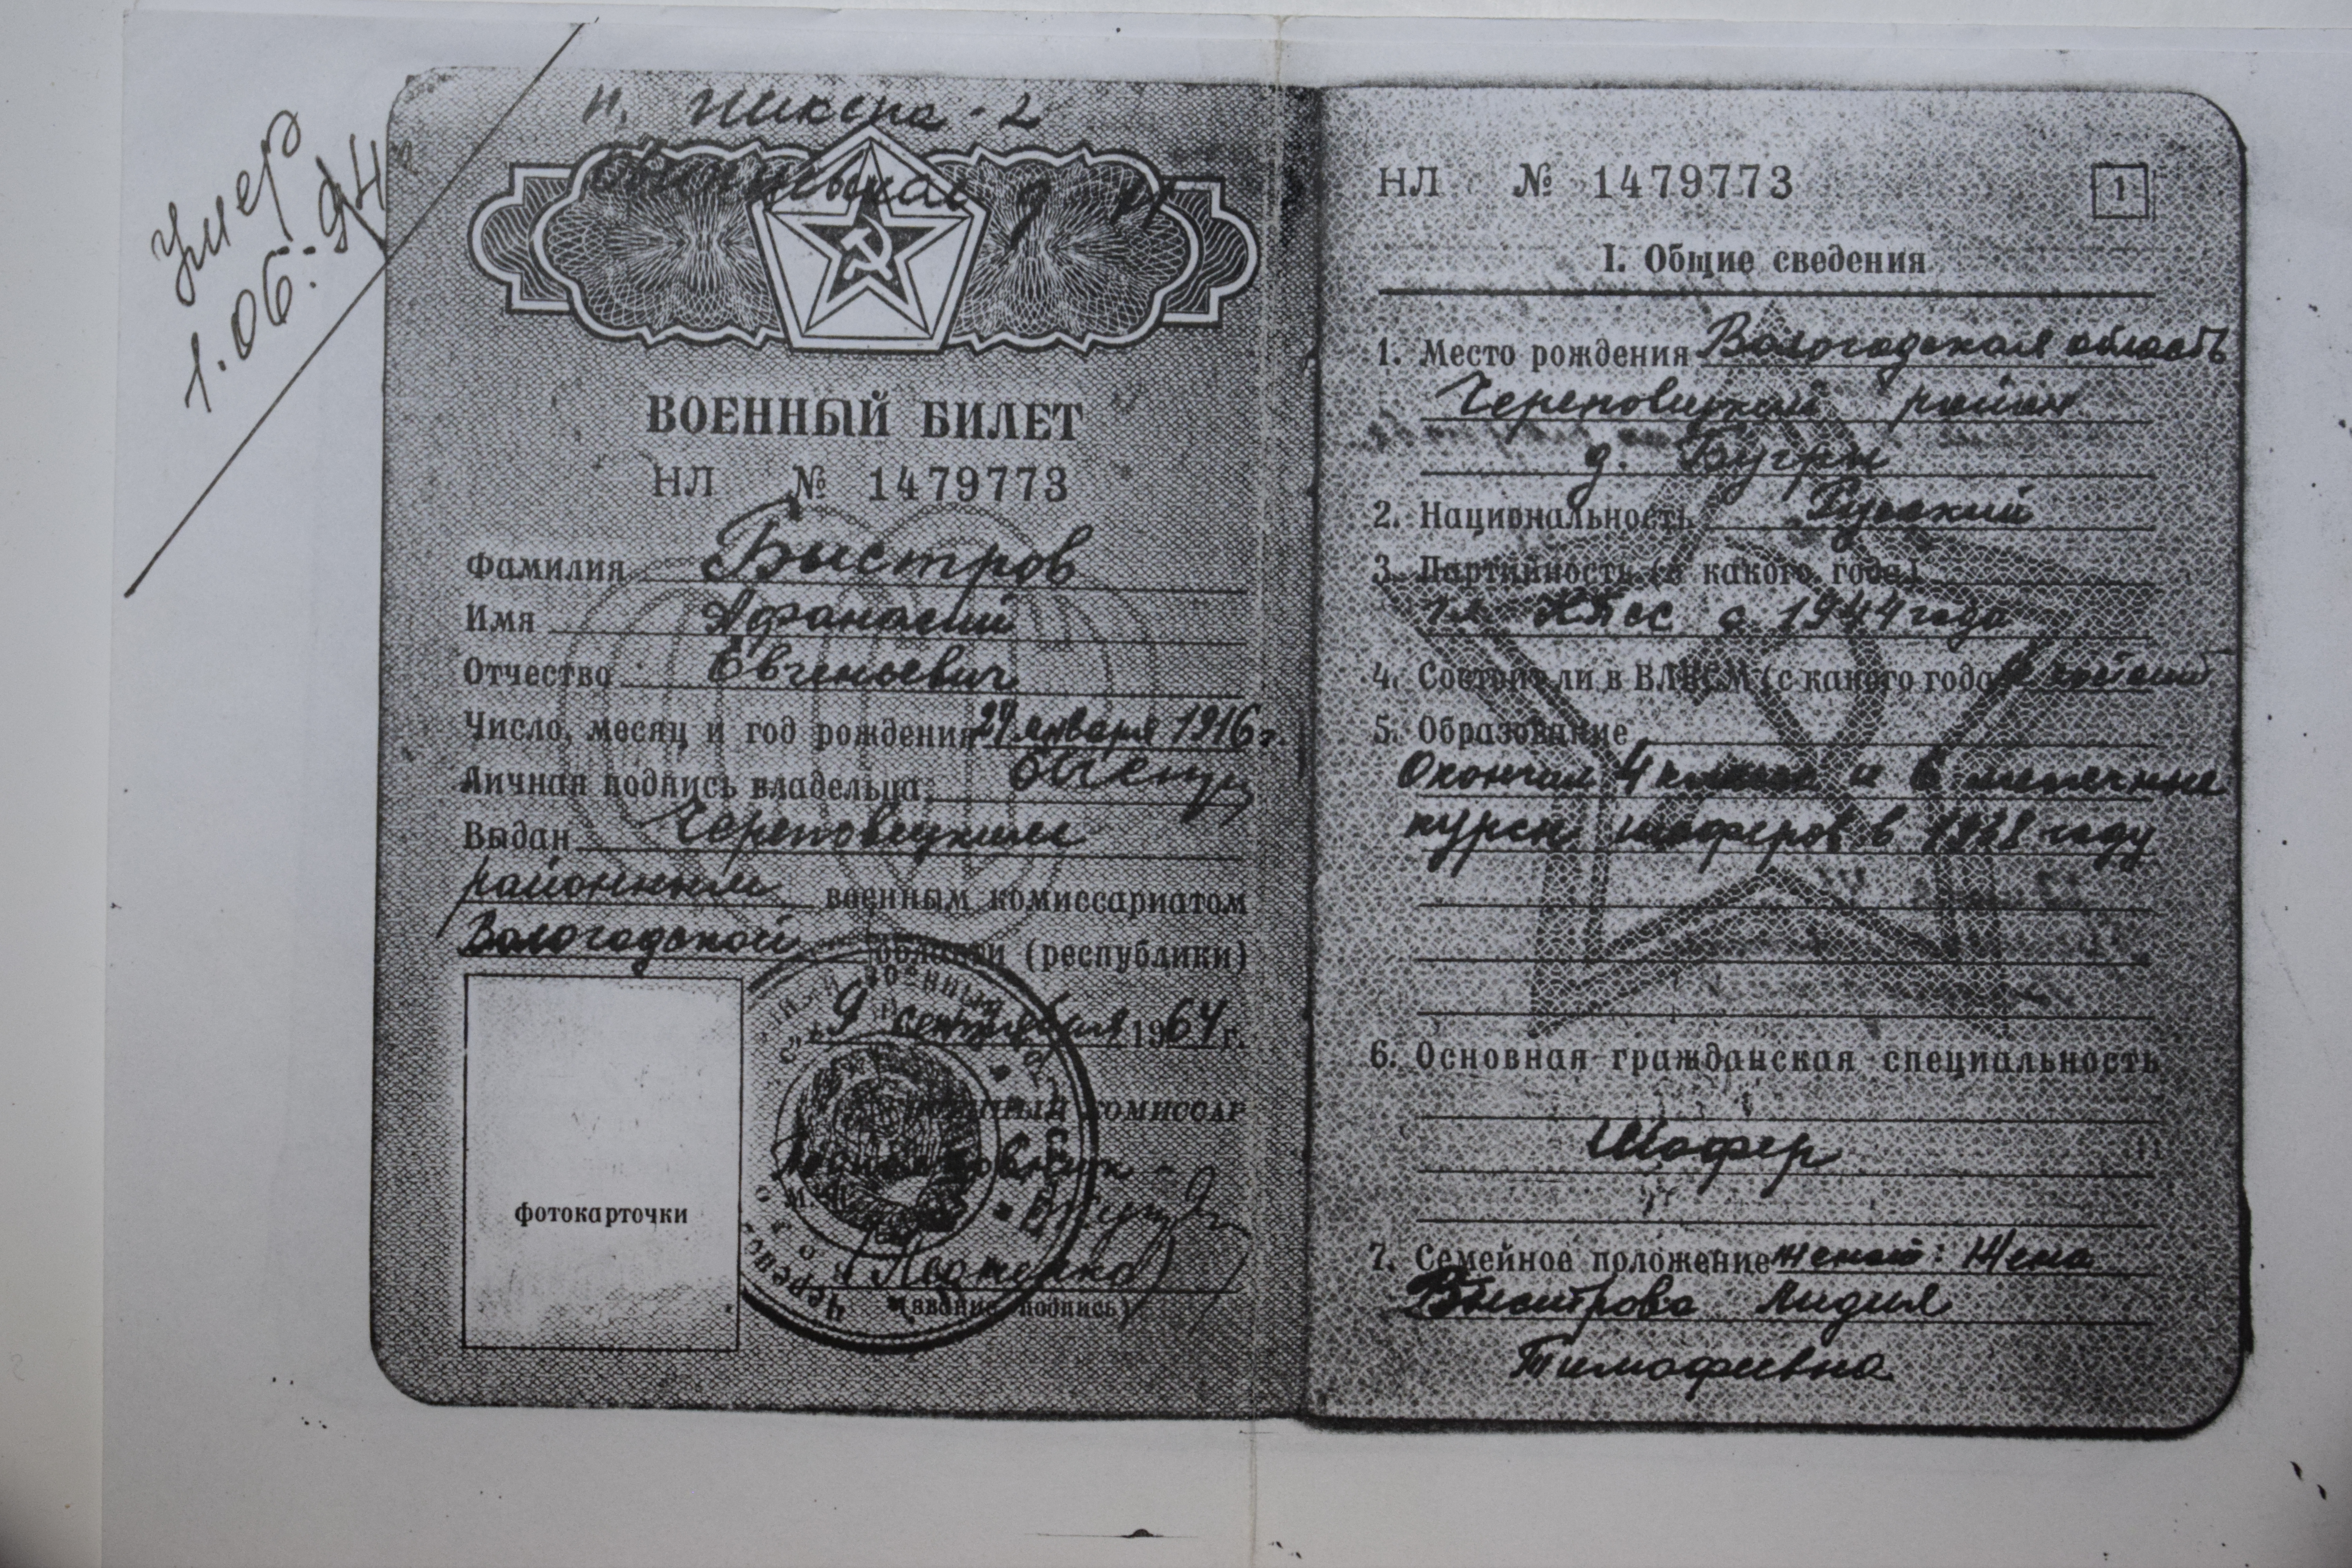 Умер
1.06.94
п.
ВОЕННЫЙ БИЛЕТ
НЛ № 1479773
Фамилия Быстров
Имя Афанасий
Отчество Евгеньевич
Число, месяц и год рождения января 1916 г.
Личная подпись владельца
Выдан Череповецким
районным военным комиссариатом
Вологодской области (республики)
9 сентября 1964 г.
военный комиссар
фотокарточки
(звание, подпись)
НЛ № 1479773
1
I. Общие сведения
1. Место рождения Вологодская область
Череповецкий район
д. Бугры
2. Национальность Русский
3. Партийность (с какого года)
чл КПСС с 1944 года
4. Состоял ли в ВЛКСМ (с какого года)
5. Образование
Окончил 4 класса и 6 месячные
курсы шоферов в 1938 году
6. Основная гражданская специальность
Шофер
7. Семейное положение женат: Жена
Быстрова Лидия
Тимофеевна